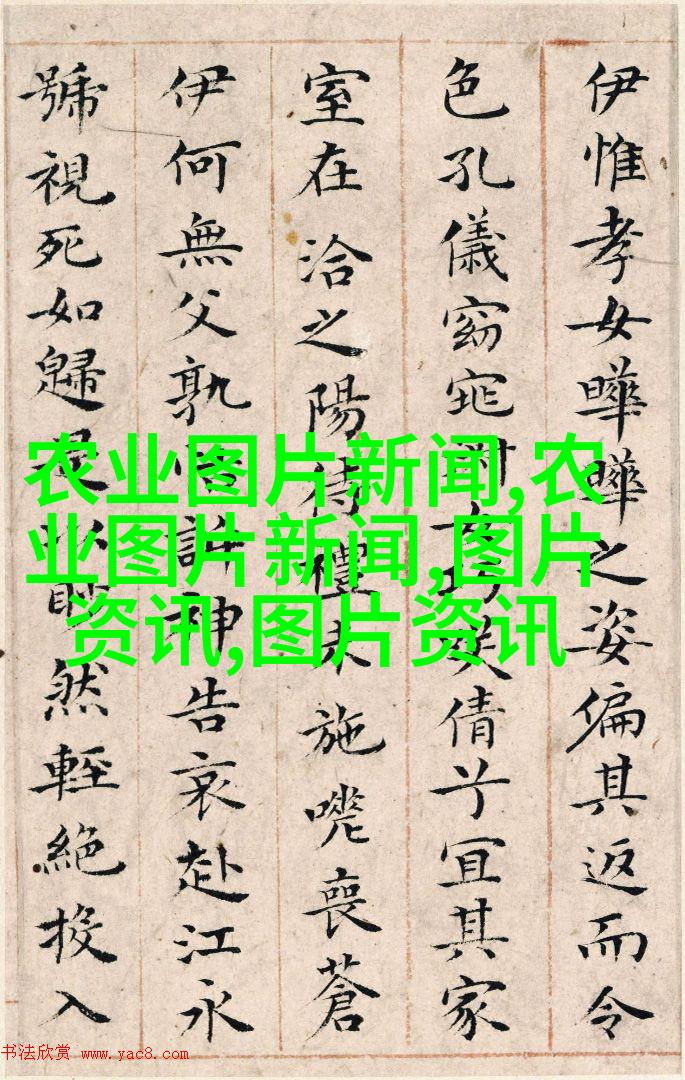 伊惟孝女曄曄之姿偏其返而令
色孔儀窈窕女巧笑倩兮宜其家
室在洽之陽待禮未施嗟喪蒼
伊何無父孰怙訴神告哀赴江永
號視死如歸是以眇然輕絶投入
农业图片新闻,农
业图片新闻,图片
资讯,图片资讯
书法欣赏 www.yac8.com